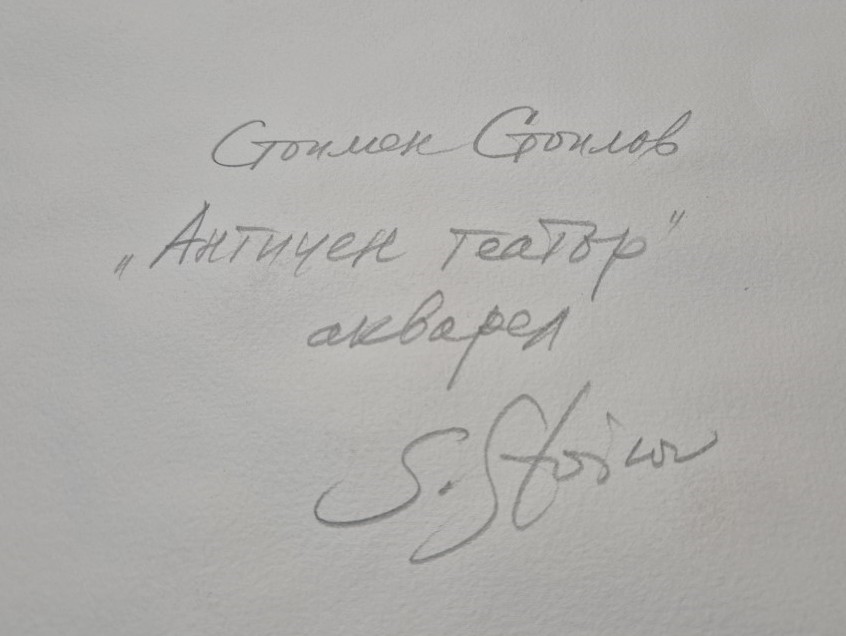 Стоимен Стоилов
„Античен театър"
акварел
S. Stoilov